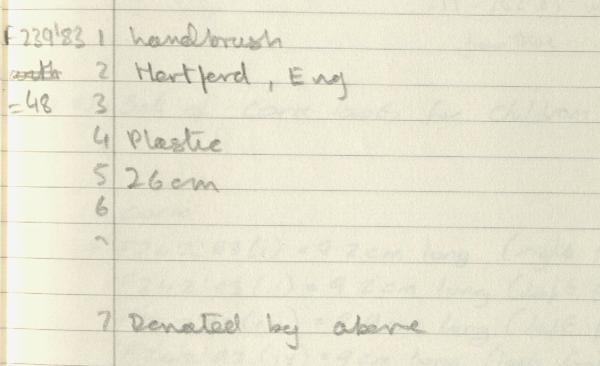 F239'83 1 handbrush
2 Hertford, Eng
=48 3
4 Plastic
5 26cm
6
7 Donated by above